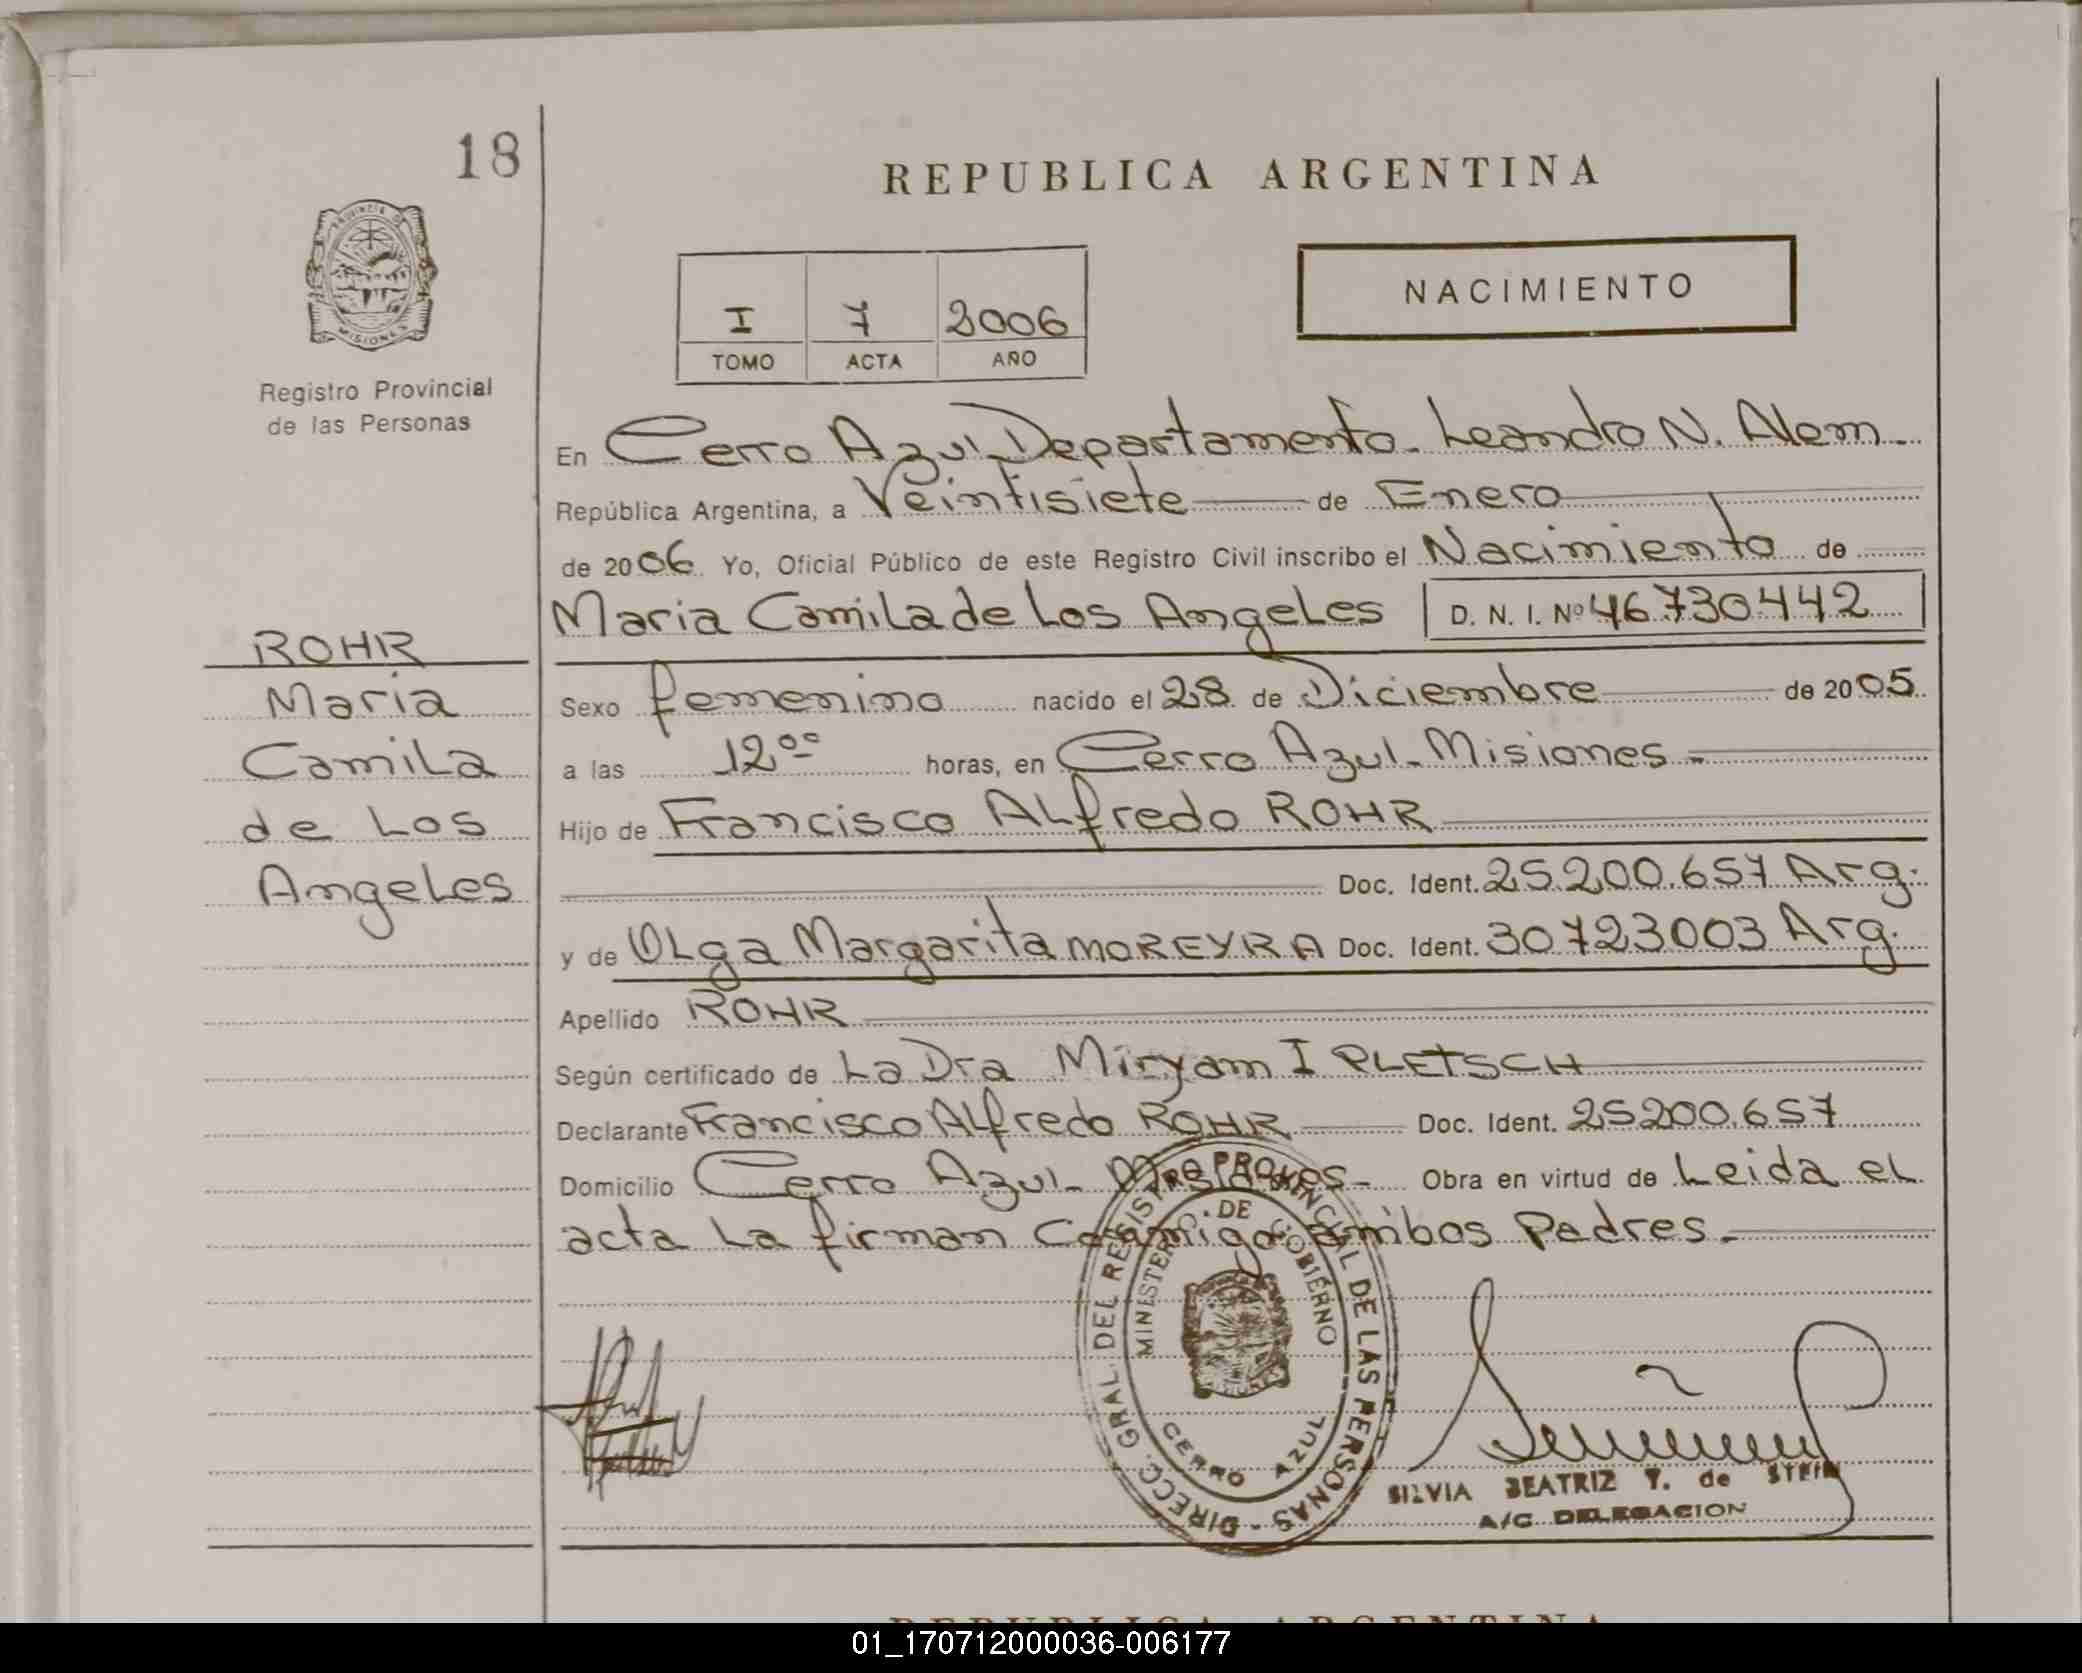 18
REPUBLICA ARGENTINA
PROVINCIA D
MISIONES
NACIMIENTO
I 7 2006
TOMO ACTA AÑO
Registro Provincial
de las Personas
En Cerro Azul Departamento. Leandro N. Alem.
República Argentina, a Veintisiete de Enero
de 2006 Yo, Oficial Público de este Registro Civil inscribo el Nacimiento de
Maria Camila de Los Angeles D. N. I. Nº 46.730442
ROHR
Maria
Camila
de Los
Angeles
Sexo femenino nacido el 28 de Diciembre de 2005
a las 12⁰⁰ horas, en Cerro Azul. Misiones.
Hijo de Francisco ALfredo ROHR
Doc. Ident. 25.200.657 Arg.
y de OLga Margarita MOREYRA Doc. Ident. 30723003 Arg.
Apellido ROHR
Según certificado de La Dra Miryam I PLETSCH
Declarante Francisco ALfredo ROHR Doc. Ident. 25200.657
Domicilio Cerro Azul. Misiones. Obra en virtud de Leida el
acta La firman Conmigo ambos Padres.
DIRECC. GRAL. DEL REGISTRO PROVINCIAL DE LAS PERSONAS -
MINISTERIO DE GOBIERNO
CERRO AZUL
SILVIA BEATRIZ Y. de STEIN
A/C DELEGACION
REPUBLICA ARGENTINA
01_170712000036-006177